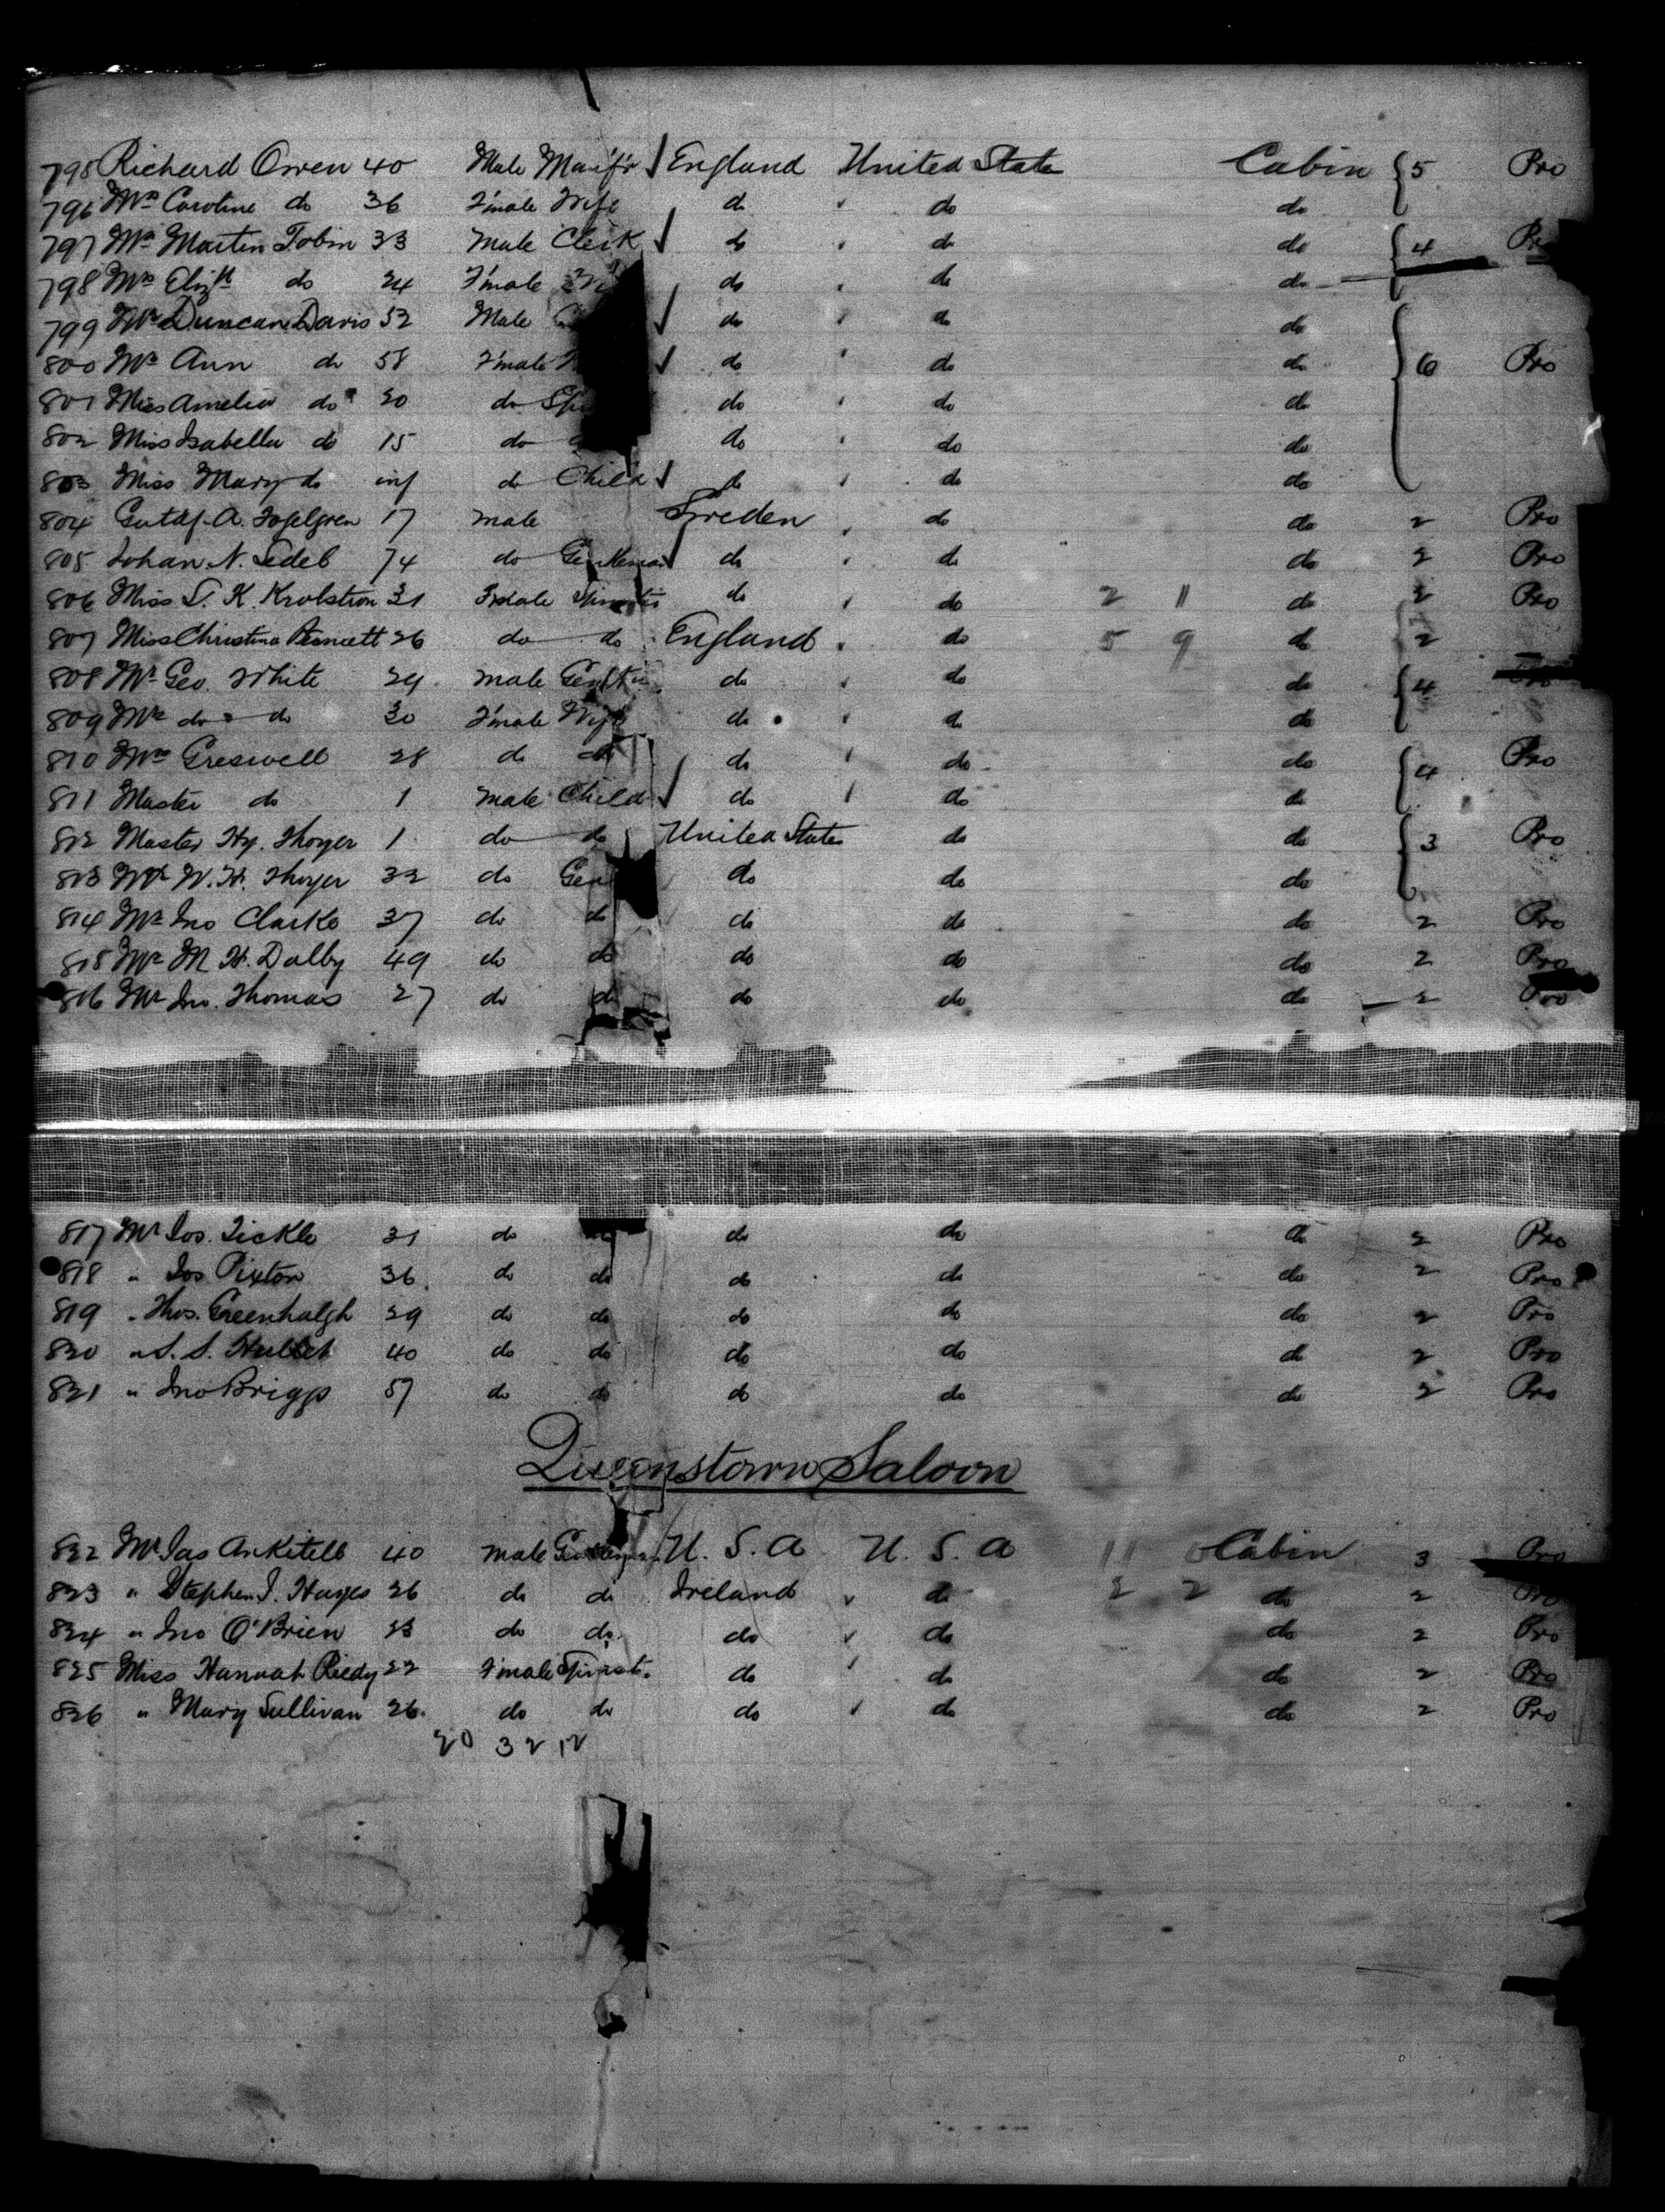 795 Richard Owen 40 Male Manf'r England United State Cabin 5 Pro
796 Mrs Caroline do 36 F'male Wife do do do
797 Mr Martin Tobin 33 Male Clerk do do do 4
798 Mrs Elizth do 24 F'male do do do
799 Mr Duncan Davis 52 Male do do do
800 Mrs Ann do 58 F'male do do do 6 Pro
801 Miss Amelia do 20 do do do do
802 Miss Isabella do 15 do do do do
803 Miss Mary do inf do Child do do do
804 Gustaf A. Fogelgren 17 male Sweden do do 2 Pro
805 Johan N. Sedel 74 do Gentleman do do do 2 Pro
806 Miss K. 31 Female Spinster do do 2 11 do 2 Pro
807 Miss Christina Bennett 26 do do England do 5 9 do 2
808 Mr Geo. White 29 male do do do 4
809 Mrs do do 30 F'male Wife do do do
810 Mrs Greswell 28 do do do do do 4 Pro
811 Master do 1 male Child do do do
812 Master Hy. Thoyer 1 do do United States do do 3 Pro
813 Mr W. H. Thoyer 32 do do do do
814 Mr Jno Clarke 37 do do do do do 2 Pro
815 Mr M H. Dalby 49 do do do do do 2 Pro
816 Mr Jno. Thomas 27 do do do do do 2 Pro
817 Mr Jos. Tickle 31 do do do do 2 Pro
818 " Jos Pixton 36 do do do do do 2 Pro
819 " Thos. Greenhalgh 29 do do do do do 2 Pro
820 " S. S. 40 do do do do do 2 Pro
821 " Jno Briggs 57 do do do do do 2 Pro
Queenstown Saloon
822 Mr Jas Anketell 40 male Gentleman U. S. A U. S. A 11 Cabin 3 Pro
823 " Stephen J. Hayes 26 do do Ireland do 2 2 do 2 Pro
824 " Jno O'Brien 23 do do do do do 2 Pro
825 Miss Hannah Riedy 22 F'male Spinst. do do do 2 Pro
826 " Mary Sullivan 26 do do do do do 2 Pro
20 32 12